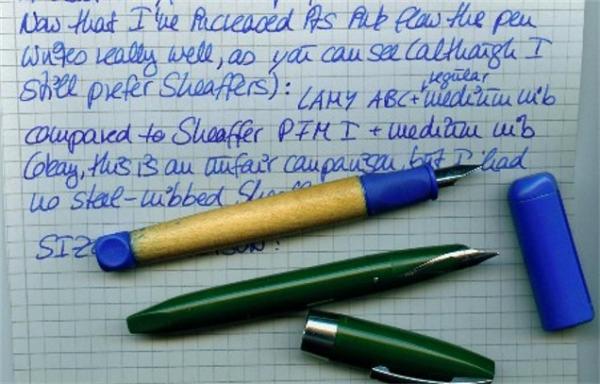 Now that I've increased its ink flow the pen
writes really well, as you can see (although I
still prefer Sheaffers): LAMY ABC + regular medium nib
compared to Sheaffer PFM I + medium nib
(okay, this is an unfair comparison, but I had
no steel-nibbed